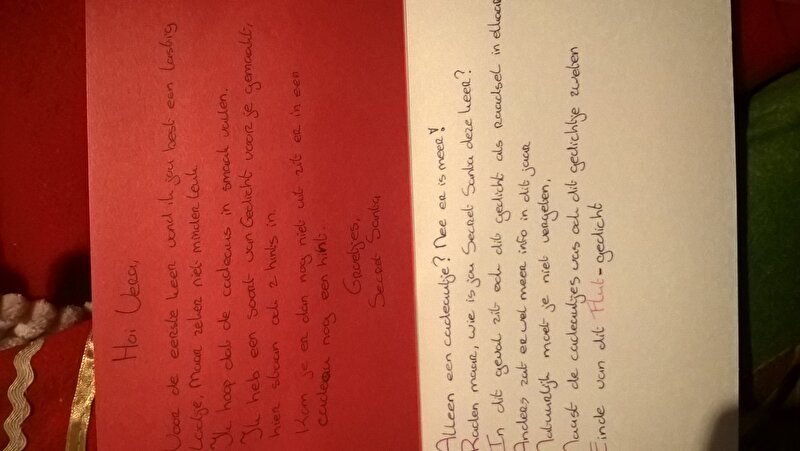 Hoi Vera,
Voor de eerste keer vond ik jou best een lastig
Lootje, maar zeker niet minder leuk
Ik hoop dat de cadeaus in smaak vallen.
Ik heb een soort van Gedicht voor je gemaakt,
hier staan ook 2 hints in.
Kom je er dan nog niet uit zit er in een
cadeau nog een hint.
Groetjes,
Secret Santa
Alleen een cadeautje? Nee er is meer!
Raden maar, wie is jou Secret Santa deze keer?
In dit geval zit ook dit gedicht als raadsel in elkaar
Anders zat er wel meer info in dit jaar
Natuurlijk moet je niet vergeten,
Naast de cadeautjes was ook dit gedichtje zweten
Einde van dit Flut-gedicht